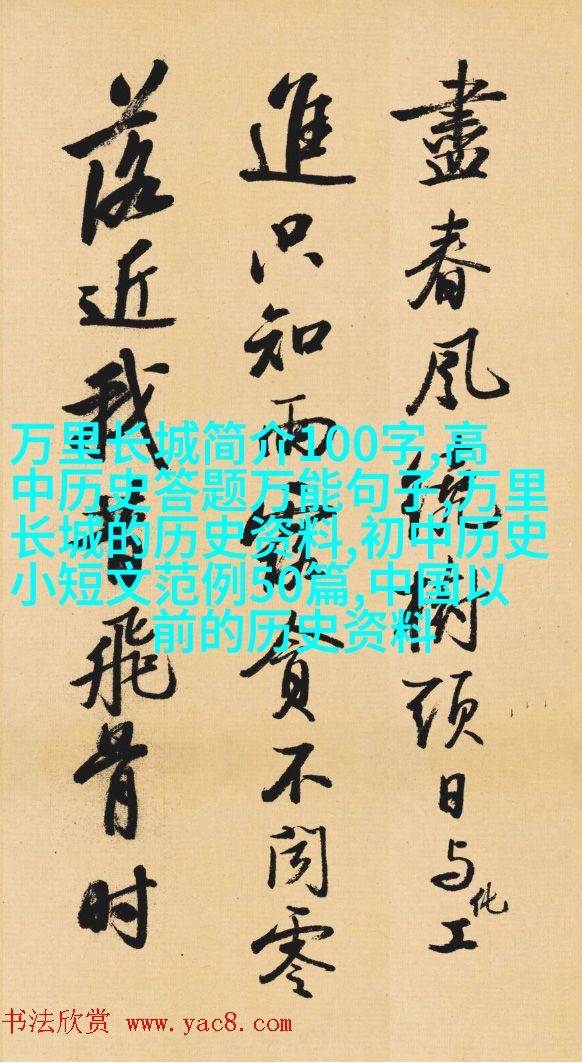 盡春風繞樹頭日与化工
進只知雨露貪不聞零
落近我昔飛骨时
万里长城简介100字,高
中历史答题万能句子,万里
长城的历史资料,初中历史
小短文范例50篇,中国以
前的历史资料
书法欣赏 www.yac8.com